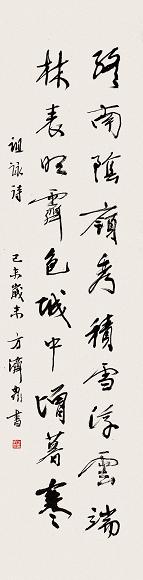 终南阴岭秀積雪浮雲端
林表明霽色城中增暮寒
祖詠詩
己未歲末方濟眾書